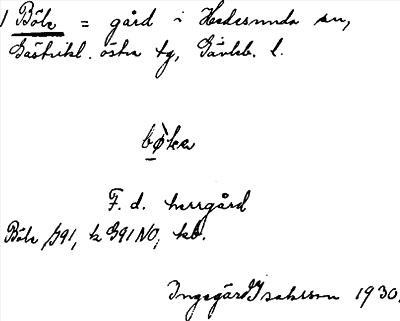 1 Böle = gård i Hedesunda sn,
Gästrikl. östra tg, Gävleb. l.
bø̀lea
F. d. herrgård
Böle J91, k G91 NO, kb.
Ingegärd Isaksson 1930.